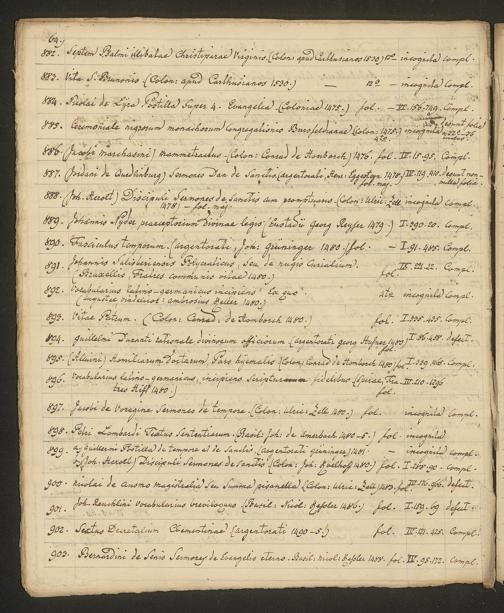 64.
882. Septem Psalmi illibatae Christiparae Virginis (Colon: apud Carthusianos 1530) 12º — incognita compl.
883. Vita S: Brunonis (Colon: apud Carthusianos 1530.) — 12º — incognita compl.
884. Nicolai de Lyra Postilla Super 4. Evangelia (Coloniae 1475.) fol. — IV. 156.749. Compl.
885. Ceremoniale nigrorum monachorum Congregationis Bursfeldianae (Colon: 1475.) incognita
4to.
886. (Jacobi marchesini) mammetractus. (Colon: Conrad de Homborch) 1476. fol. IV. 15-95. Compl.
887. Jordani de Quedlinburg) Sermones Dan de Sanctis (argentorato, Henr: Eggesteyn 1478) IV. 119.410. desunt non-
fol. maj. nulla folia
888. (Joh. Herolt) Discipuli Sermones de Sanctis cum promptuario. (Colon: Ulric: Zell incognita Compl.
1478) fol. maj.
889. Johannis Nyder praeceptorium Divinae legis (Eustadii Georg Reyser 1479.) — I. 290-20. Compl.
890. Fasciculus temporum. (argentorati, Joh: Grüninger 1480.) fol. — I. 91-485. Compl.
891. Johannis Salisberiensis Polycraticus, Seu de nugis Curialium.
(Bruxellis, Fratres communis vitae 1480.) fol. IV. 211-22. Compl.
892. Vocabularius latino-germanicus incipiens
(augustae vindelicor: ambrosius Keller 1480.) 4to incognita Compl.
893. Vitae Patrum. (Colon: Conrad: de Homborch 1480.) fol. I. 835-485. Compl.
894. Guillelmi Duranti rationale divinorum officiorum (argentorati georg Husner 1480) I. 86-488. defect.
fol.
895. (Alcuini) Homiliarum Doctorum, Pars hyemalis (Colon: Conrad de Homborch 1480) fol I. 229-465. Compl.
896. Vocabularius latino-germanicus, incipiens Scripturarum fidelibus (Spirae, Fra- IV. 210-1296
tres Hist 1480.) fol.
897. Jacobi de Voragine Sermones de tempore (Colon: Ulric: Zell 1480.) fol. incognita compl.
898. Petri Lombardi Textus Sententiarum. (Basil: Joh: de Amerbach 1480-5.) fol. incognita
899. Guillermi Postilla de tempore et de Sanctis (argentorati grüninger 1481 — incognita compl.
(Joh: Herolt) Discipuli Sermones de Sanctis (Colon: Joh: Koelhoff 1480) fol. I. 268-90. — compl.
900. Nicolai de Ausmo magistralis Seu Summa pisanella (Colon: Ulric: Zell) 1483. fol. IV. 576-965. defect.
901. Joh. Reuchlini Vocabularius breviloquus (Basil: Nicol: Kessler 1486.) fol. I. 151. 69 defect.
902. Sextus Decretalium Clementinae (argentorati 1490-5.) fol. IV. 121-425. Compl.
903. Bernardini de Senis Sermones de Evangelio eterno. Basil: nicol: Kessler 1488. fol. IV. 95-172. compl.